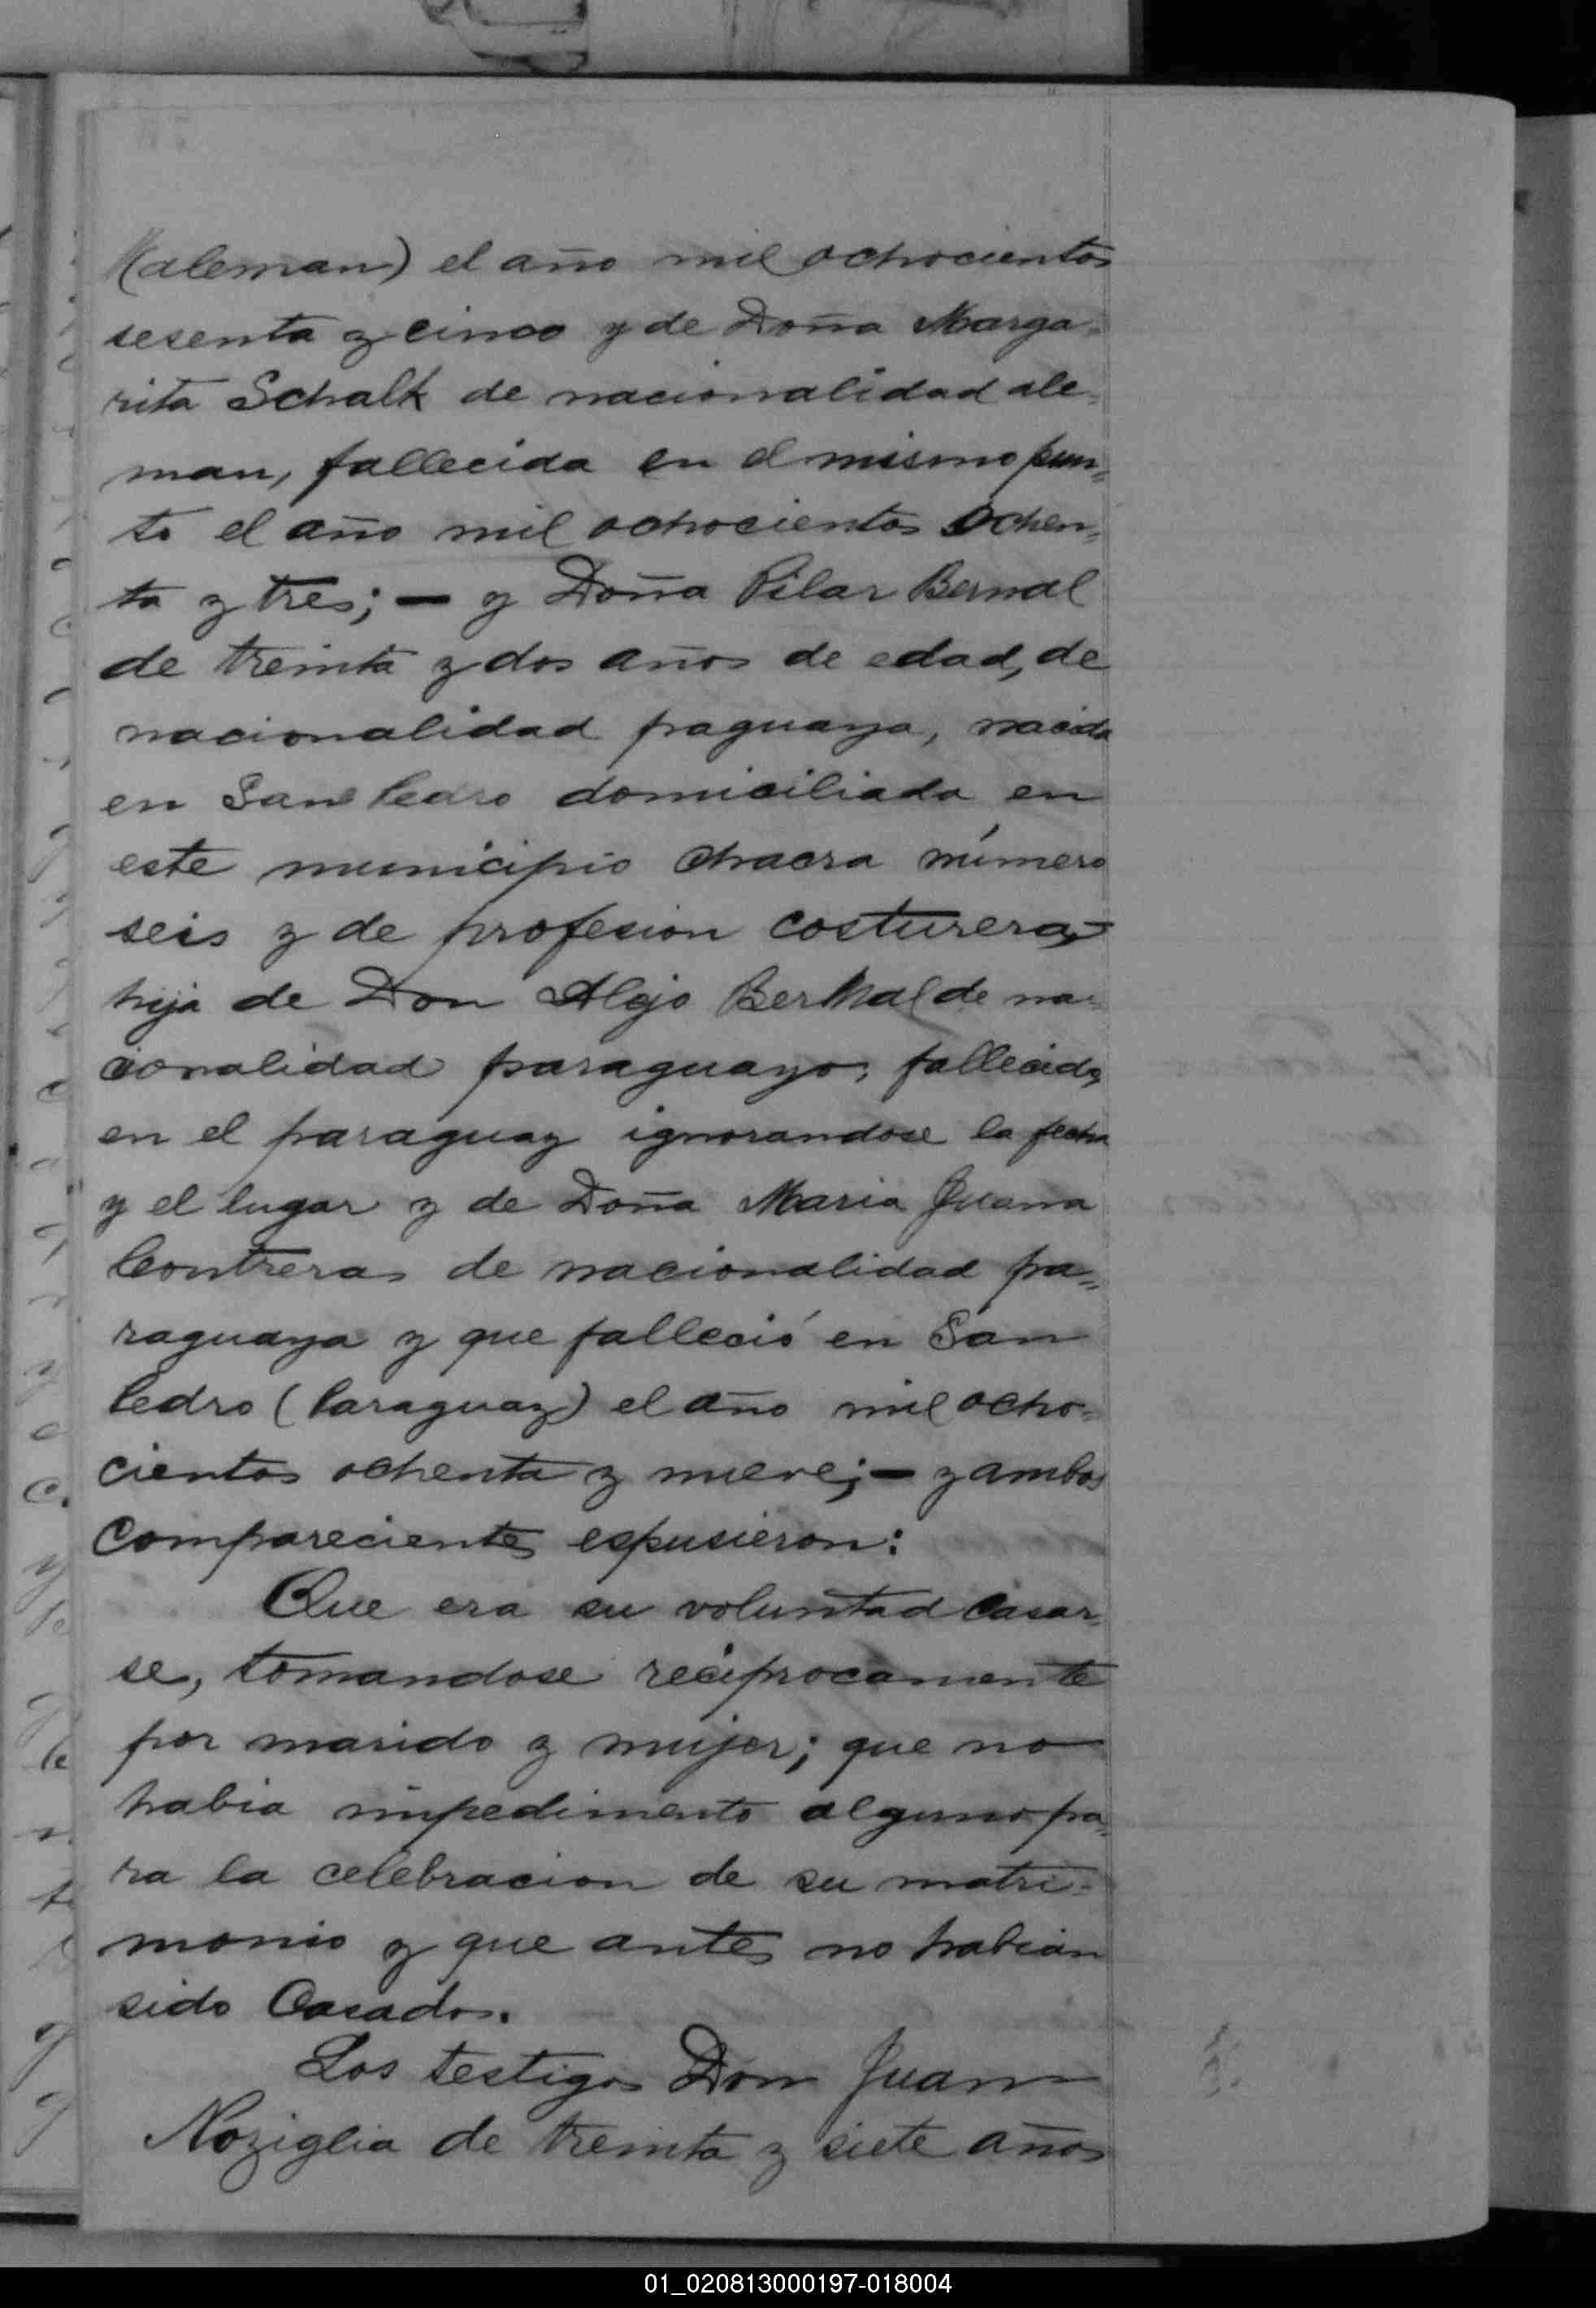 (aleman) el año mil ochocientos
sesenta y cinco y de Doña Marga-
rita Schalk de nacionalidad ale-
man, fallecida en el mismo pun-
to el año mil ochocientos ochen-
ta y tres; — y Doña Pilar Bernal
de treinta y dos años de edad, de
nacionalidad paguaya, nacida
en San Pedro domiciliada en
este municipio chacra número
seis y de profesion costurera,
hija de Don Alejo Bernal de na-
cionalidad paraguayo, fallecido
en el paraguay ignorandose la fecha
y el lugar y de Doña Maria Juana
Contreras de nacionalidad pa-
raguaya y que falleció en San
Pedro (Paraguay) el año mil ocho-
cientos ochenta y nueve; — y ambos
Comparecientes espusieron:
Que era su voluntad Casar-
se, tomandose reciprocamente
por marido y mujer; que no
habia impedimento alguno pa-
ra la celebracion de su matri-
monio y que antes no habian
sido Casados.
Los testigos Don Juan
Noziglia de treinta y siete años
01_020813000197-018004